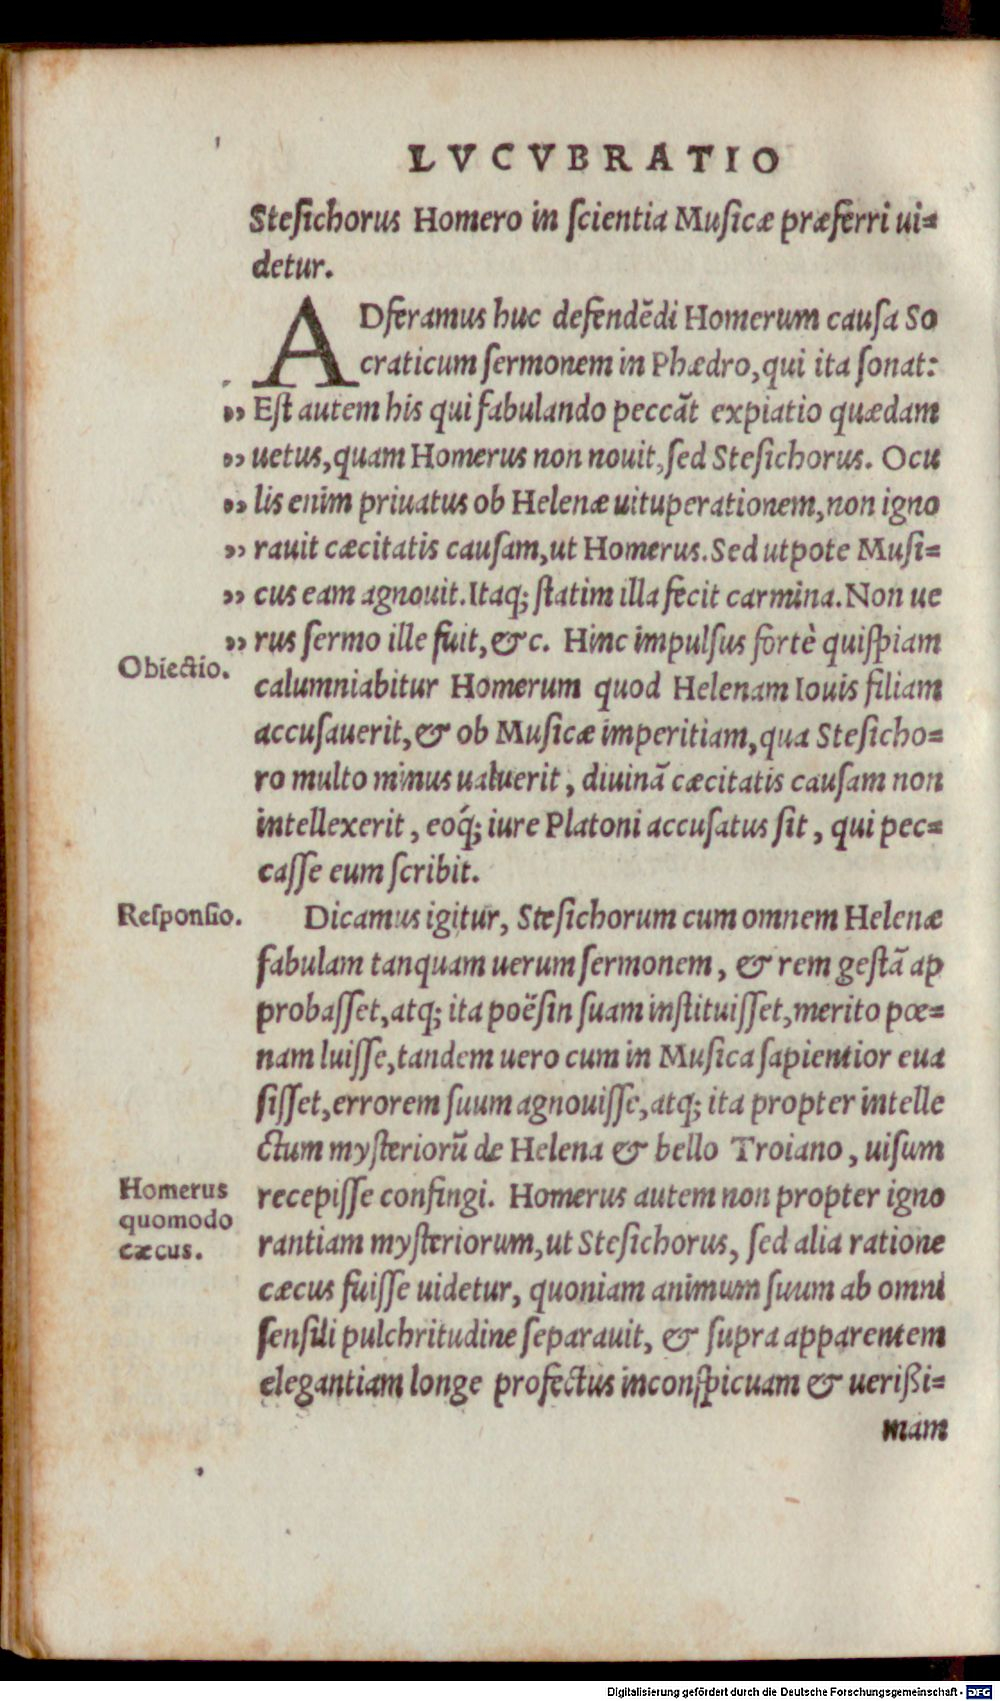 LVCVBRATIO
Steſichorus Homero in ſcientia Muſicæ præferri ui=
detur.
ADferamus huc defendēdi Homerum cauſa So
craticum ſermonem in Phædro, qui ita ſonat:
„ Eſt autem his qui fabulando peccāt expiatio quædam
„ uetus, quam Homerus non nouit, ſed Steſichorus. Ocu
„ lis enim priuatus ob Helenæ uituperationem, non igno
„ rauit cæcitatis cauſam, ut Homerus. Sed utpote Muſi=
„ cus eam agnouit. Itaq; ſtatim illa fecit carmina. Non ue
„ rus ſermo ille fuit, &c. Hinc impulſus fortè quiſpiam
Obiectio.
calumniabitur Homerum quod Helenam Iouis filiam
accuſauerit, & ob Muſicæ imperitiam, qua Steſicho=
ro multo minus ualuerit, diuinā cæcitatis cauſam non
intellexerit, eoq́; iure Platoni accuſatus ſit, qui pec=
caſſe eum ſcribit.
Reſponſio.
Dicamus igitur, Steſichorum cum omnem Helenæ
fabulam tanquam uerum ſermonem, & rem geſtā ap
probaſſet, atq; ita poëſin ſuam inſtituiſſet, merito pœ=
nam luiſſe, tandem uero cum in Muſica ſapientior eua
ſiſſet, errorem ſuum agnouiſſe, atq; ita propter intelle
ctum myſteriorū de Helena & bello Troiano, uiſum
Homerus
quomodo
cæcus.
recepiſſe confingi. Homerus autem non propter igno
rantiam myſteriorum, ut Steſichorus, ſed alia ratione
cæcus fuiſſe uidetur, quoniam animum ſuum ab omni
ſenſili pulchritudine ſeparauit, & ſupra apparentem
elegantiam longe profectus inconſpicuam & uerißi=
mam
Digitalisierung gefördert durch die Deutsche Forschungsgemeinschaft - DFG